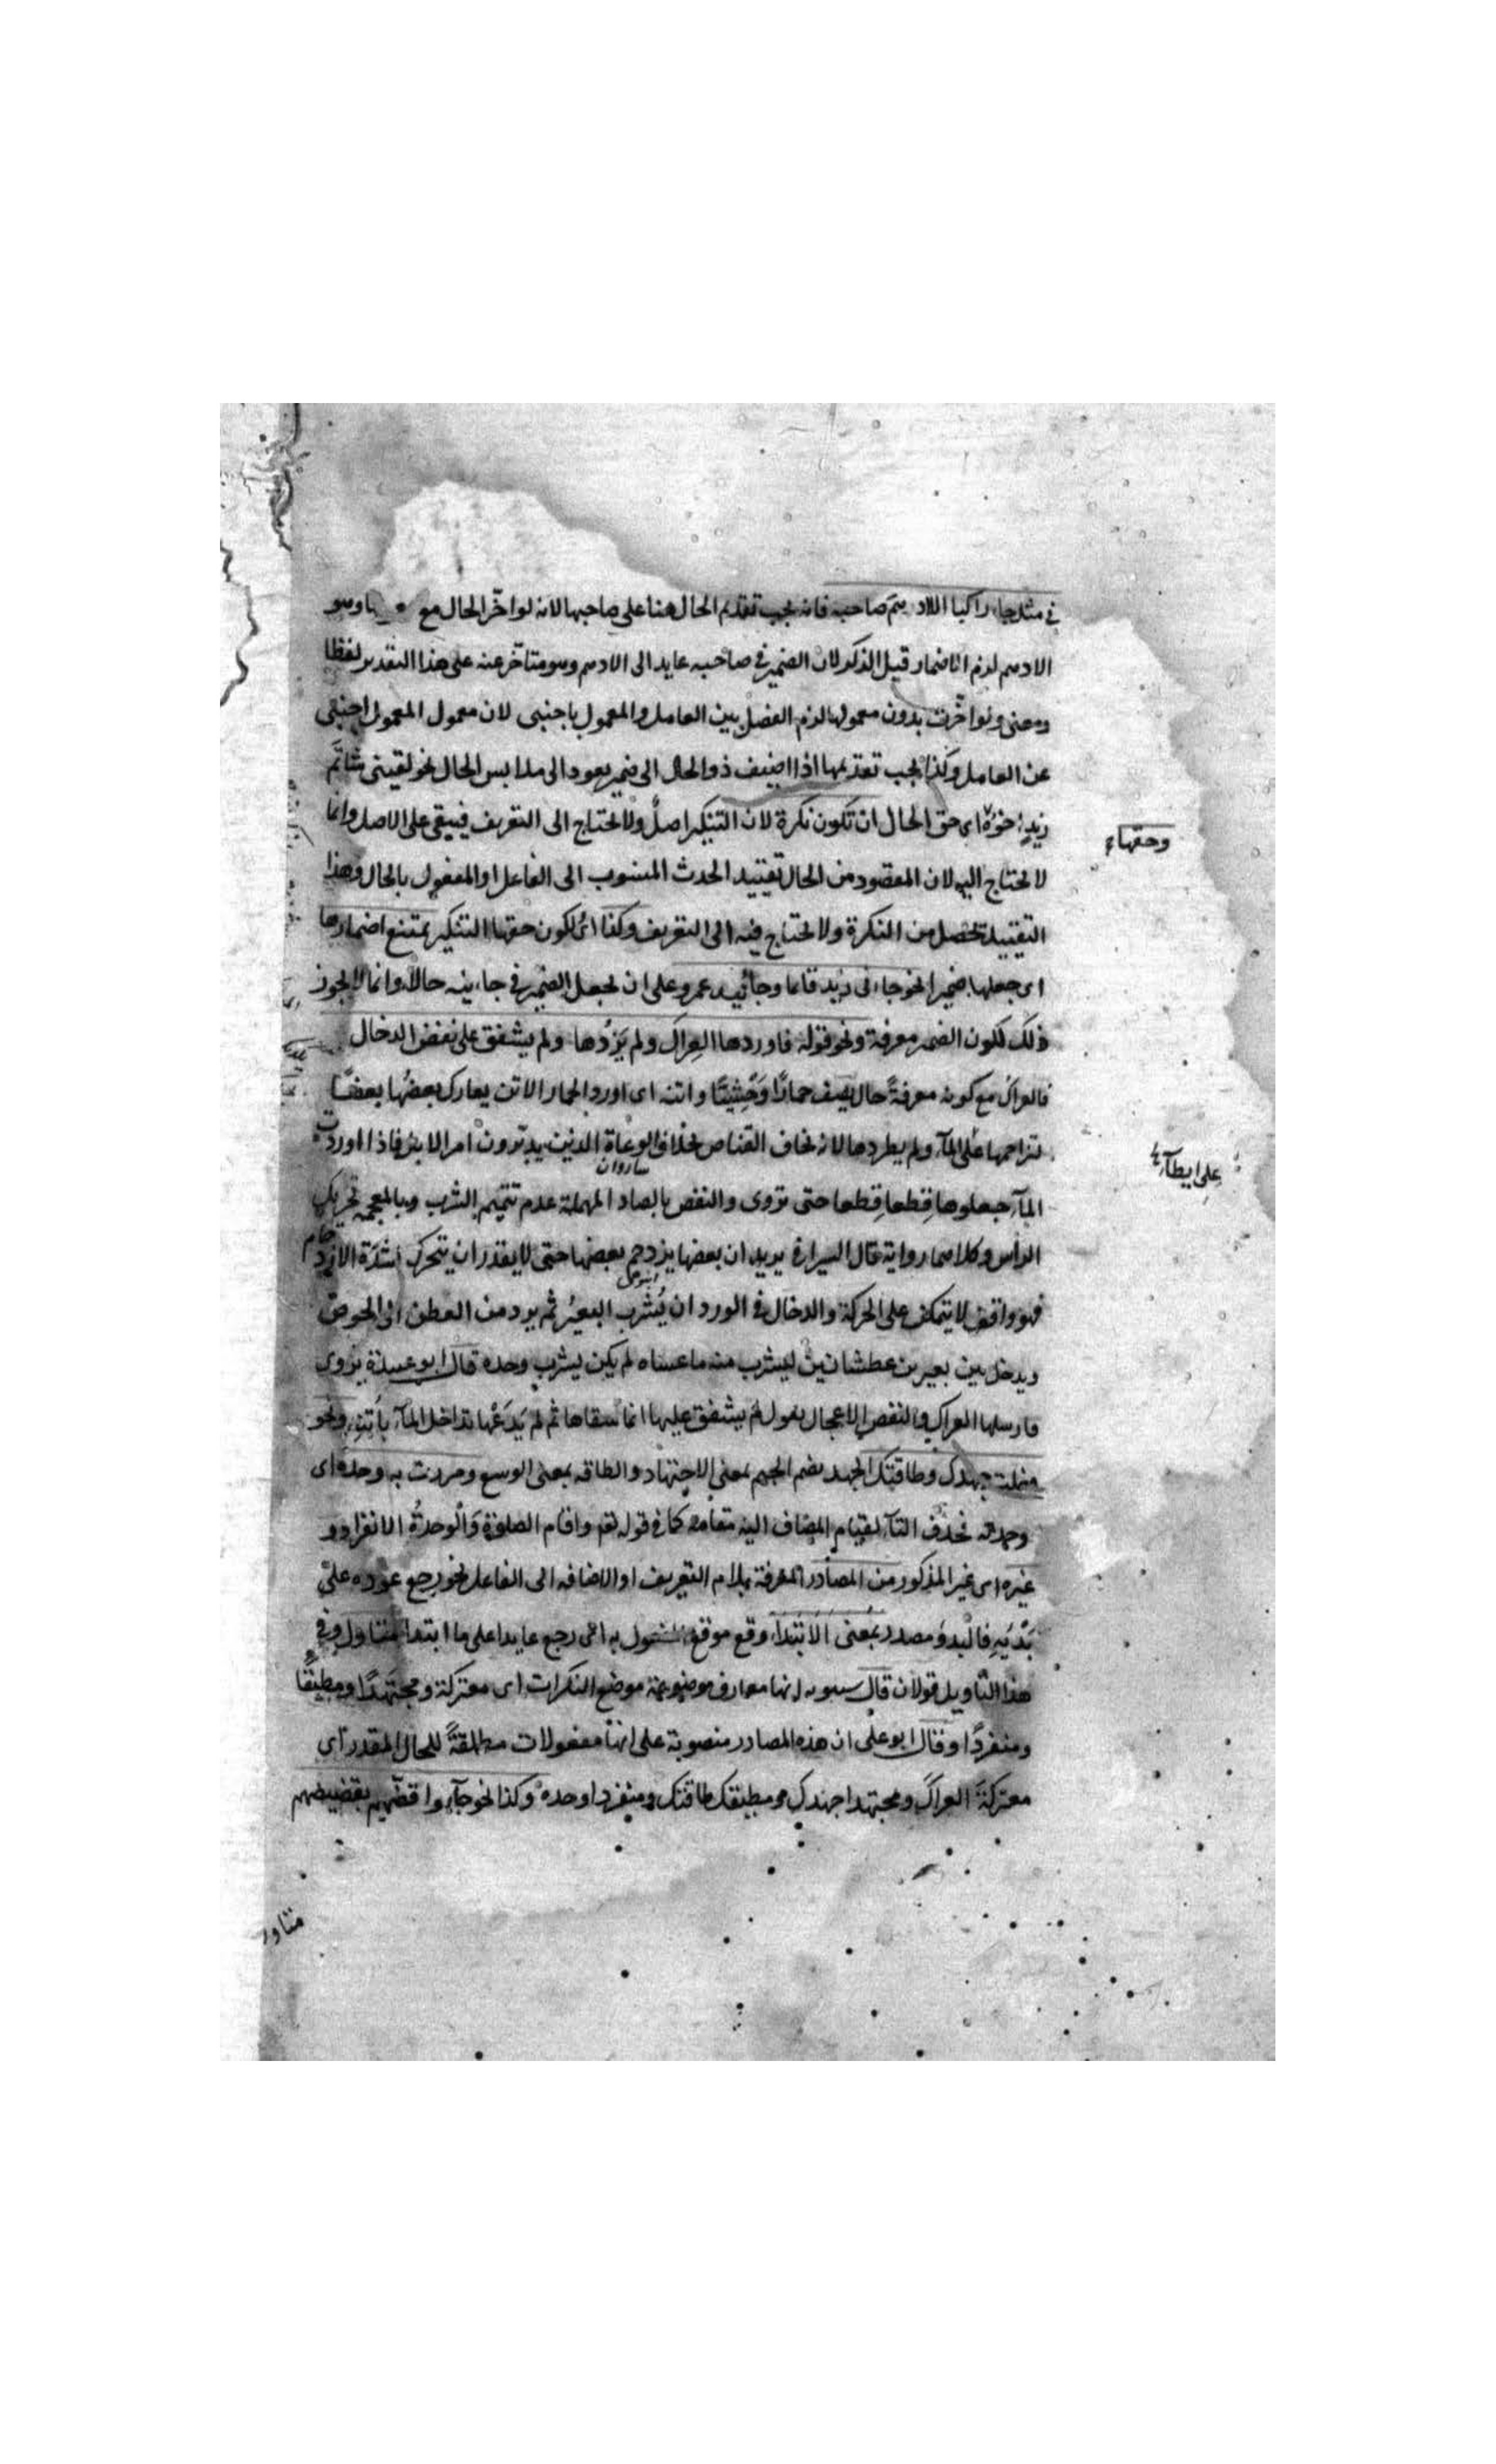 في مثل جاء راكبا الادهم صاحبه فانه يجب تقديم الحال هنا على صاحبها لانه لو اخّر الحال مع وهو
الادهم لزم الاضمار قبل الذكر لان الضمير في صاحبه عايد الى الادهم وهو متاخر عنه على هذا التقدير لفظا
ومعنى ولو اخّرت بدون معمولها لزم الفصل بين العامل والمعمول باجنبى لان معمول المعمول اجنبى
عن العامل وكذا يجب تقديمها اذا اضيف ذو الحال الى ضمير يعود الى ملابس الحال نحو لقيتى شاتم
زيدٍ اخوه اى حق الحال ان تكون نكرة لان التنكير اصل ولا يحتاج الى التعريف فيبقى على الاصل وانما
وحقها
لا يحتاج اليه لان المقصود من الحال تقييد الحدث المنسوب الى الفاعل او المفعول بالحال وهذا
التقييد يحصل من النكرة ولا يحتاج فيه الى التعريف وكذا اى لكون حقها التنكير يمتنع اضمارها
اى جعلها ضميرا نحو جاءنى زيد قائما وجائيه عمرو على ان يجعل الضمير في جاءيه حالا وانما لا يجوز
ذلك لكون الضمير معرفة ونحو قوله فاوردها العِراكَ ولم يَزُدها ولم يشفق على نغض الدخال
فالعراك مع كونه معرفةً حال يصف حمارًا وَحْشِيًّا واتنه اى اورد الحمار الاتن يعارك بعضُها بعضًا
تزاحمها على المآء ولم يطردها لانه يخاف القناص بخلاف الرعاة الذين يدبّرون امر الابل فاذا اوردت
على ايطآء
ساروان
المآء جعلوها قِطعا قِطعا حتى تروى والنغص بالصاد المهملة عدم تتميم الشرب وبالمعجمة تحريك
الراس وكلاهما رواية قال السيرافى يريد ان بعضها يزدحم بعضها حتى لا يقدر ان يتحرك لشدّة الازدحام
فهو واقف لا يتمكن على الحركة والدخال في الورد ان يُشرب البعيرُ ثم يرد من العطن الى الحوض
ويدخل بين بعيرين عطشانين ليشرب منه ما عساه لم يكن ليشرب وحده قال ابو عبيدة يروى
فارسلها العراك والنغص الاعجال يقول لم يشفق عليها انما سقاها ثم لم يَدَعْها تداخل المآء باُتنِه ونحو
فعلت جهدك وطاقتك الجهد بضم الجيم بمعنى الاجتهاد والطاقه بمعنى الوسع ومررت به وحده اى
وحدته فحذف التآء لقيام المضاف اليه مقامه كما في قوله تعم واقام الصلوة وَالْوحدةُ الانفراد و
غيره اى غير المذكور من المصادر المعرفة بلام التعريف او الاضافه الى الفاعل نحو رجع عوده على
بَدْيِهِ فالْبدوُ مصدر بمعنى الابتداء وقع موقع المفعول به اى رجع عايدا على ما ابتدا متناول وفي
هذا التاويل قولان قال سيبويه انها معارف موضوعة موضع النكرات اى معتركة ومجتهدًا ومطيقًا
ومنفردًا وقال ابو على ان هذه المصادر منصوبة على انها مفعولات مطلقةً للحال المقدر اى
معتركةً العراكَ ومجتهدا جهدك ومطيقك طاقتك ومنفردا وحده وكذا نحو جآءوا قضّهم بقضيضهم
متاول